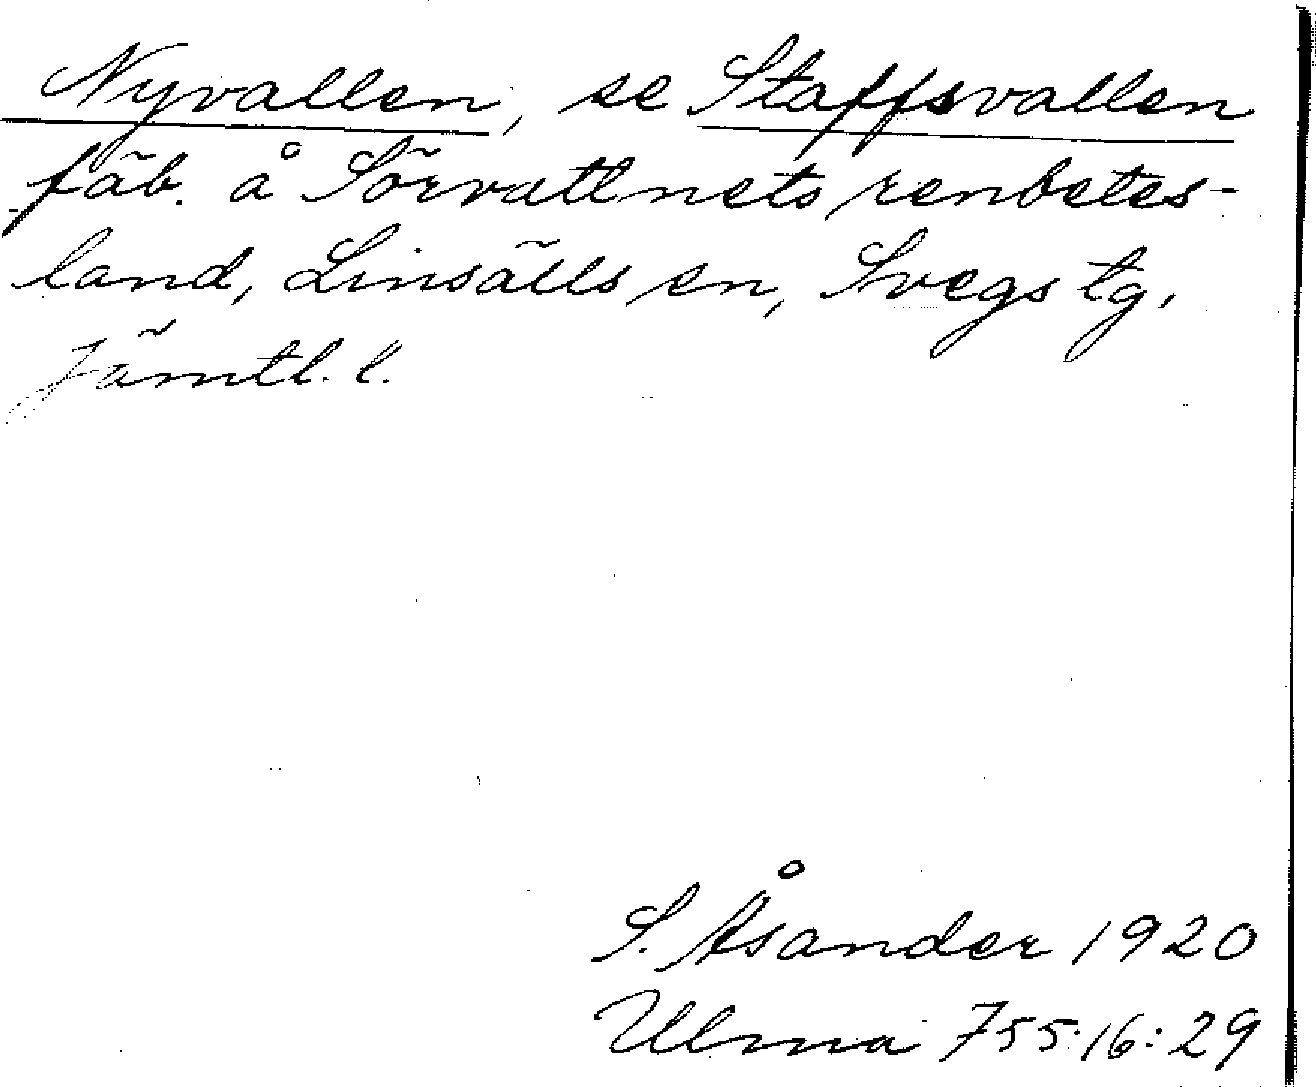 Nyvallen, se Staffsvallen
fäb. å Sörvattnets renbetes-
land, Linsälls sn, Svegs tg,
Jämtl. l.
S. Åsander 1920
Ulma 755:16:29